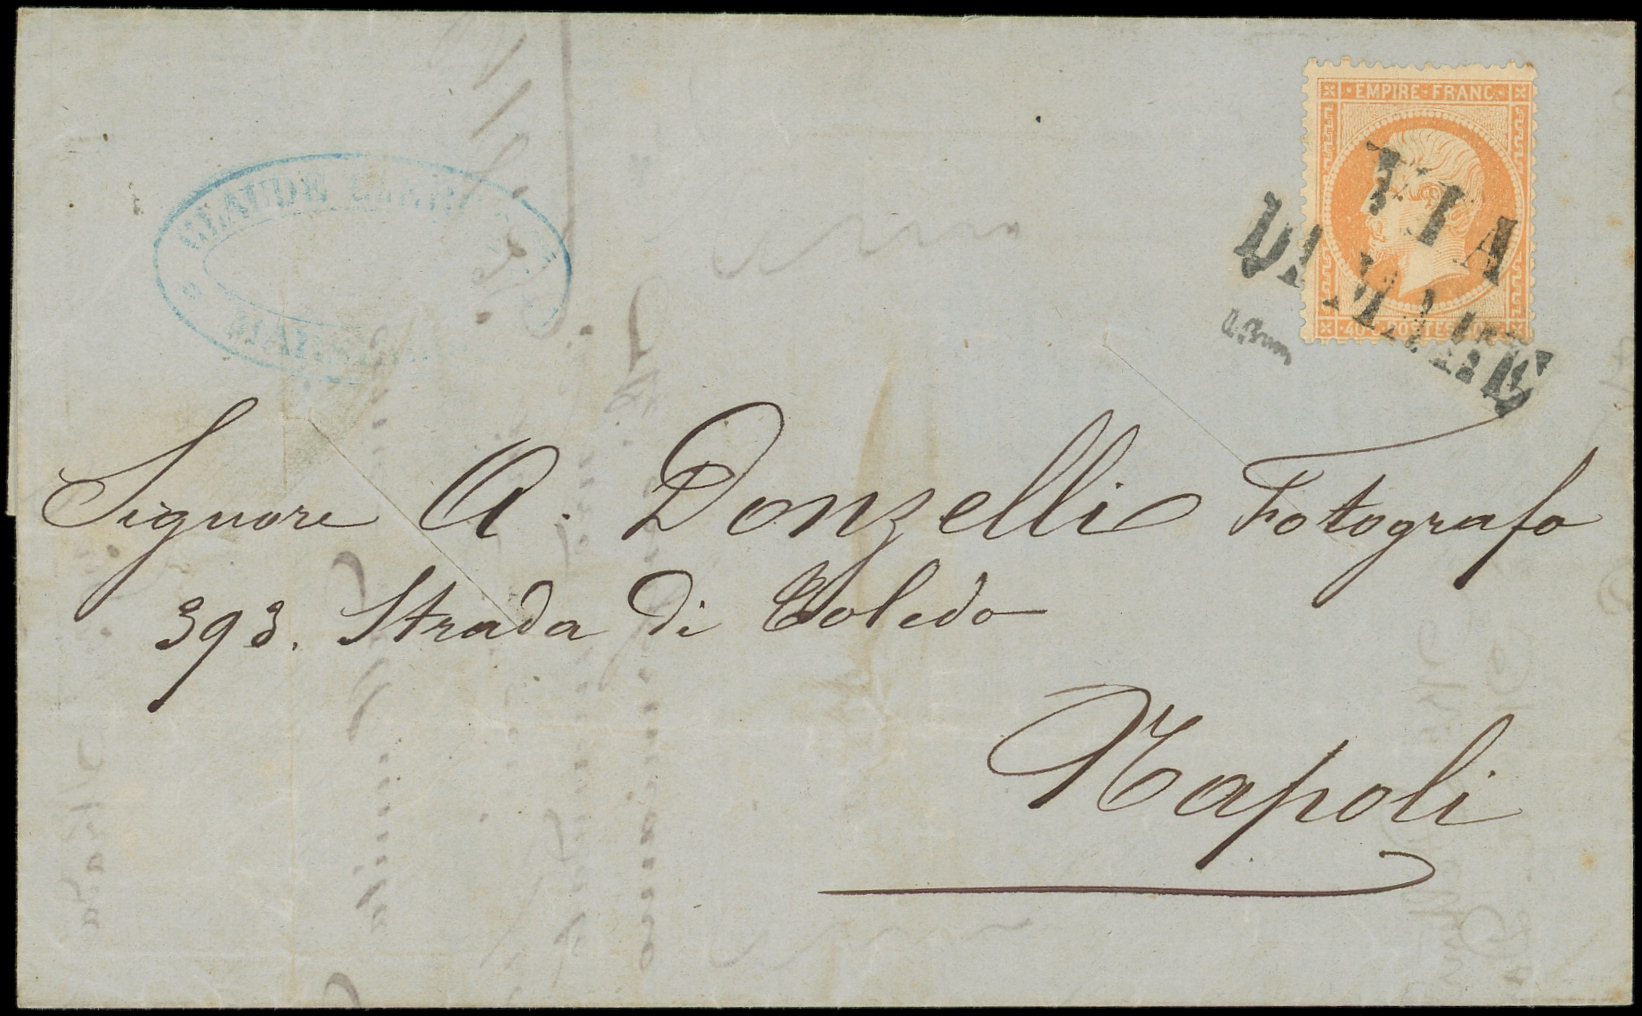 CLAUDE
EMPIRE FRANC.
40 C POSTES 40 C
VIA
DI MARE
A. Brun
Signore A. Donzelli Fotografo
393. Strada di Toledo
Napoli